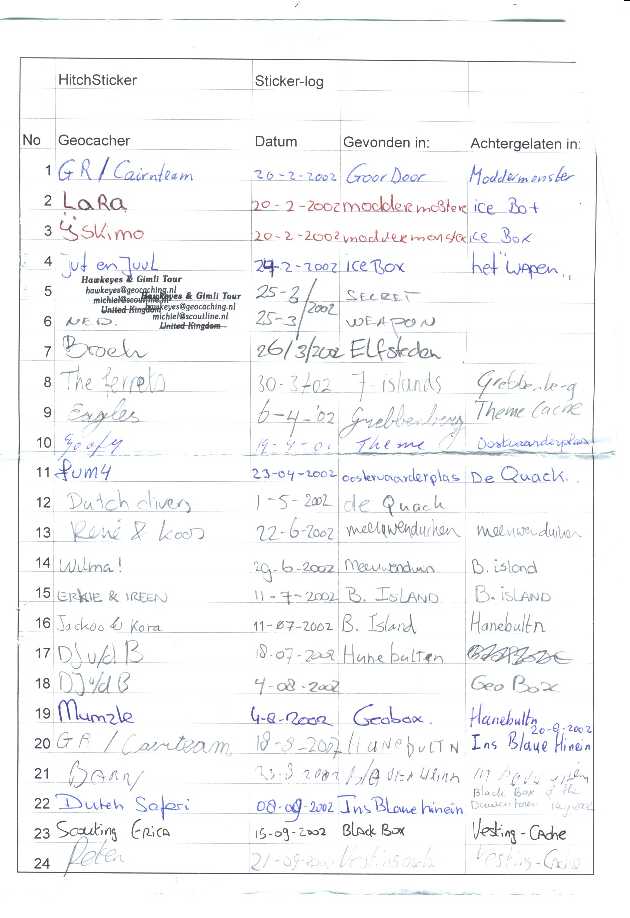 HitchSticker Sticker-log
No Geocacher Datum Gevonden in: Achtergelaten in:
1 GR/Cairnteam 20-2-2002 Goor Door Moddermonster
2 LaRa 20-2-2002 ice Box
3 ijskimo 20-2-2002 moddermonster ice Box
4 jut en juul 24-2-2002 ICE BOX het Wapen..
Hawkeyes & Gimli Tour
hawkeyes@geocaching.nl
michiel@scoutline.nl
United Kingdom
Hawkeyes & Gimli Tour
hawkeyes@geocaching.nl
michiel@scoutline.nl
United Kingdom
5 25-3/2002 SECRET
6 NED. 25-3 WEAPON
7 Broeh 26/3/2002 Elfsteden
8 The ferrets 30-3-'02 7-islands Grebbenberg
9 Eagles 6-4-'02 Grebbenberg Theme Cache
10 Goofy Theme Oostvaarderplas
11 Pum4 23-04-2002 oostervaarderplas De Quack..
12 Dutch divers 1-5-2002 de Quack
13 René & Koos 22-6-2002 meeuwenduinen meeuwenduinen
14 Wilma! 29-6-2002 Meeuwenduin B. island
15 ERKIE & IREEN 11-7-2002 B. ISLAND B. iSLAND
16 Jackoo & Kora 11-07-2002 B. Island Hanebultn
17 DJ v/d B 18-07-2002 Hanebulten
18 DJ v/d B 4-08-2002 Geo Box
19 Mumzle 4-8-2002 Geobox. Hanebultn
20-8-2002
20 GR/Cairnteam HANEBULTN Ins Blaue Hinein
21 Barry
Black Box of the
22 Dutch Safari 08-09-2002 Ins Blaue hinein
23 Scouting Erica 15-09-2002 Black Box Vesting-Cache
24 Peter Vesting-Cache